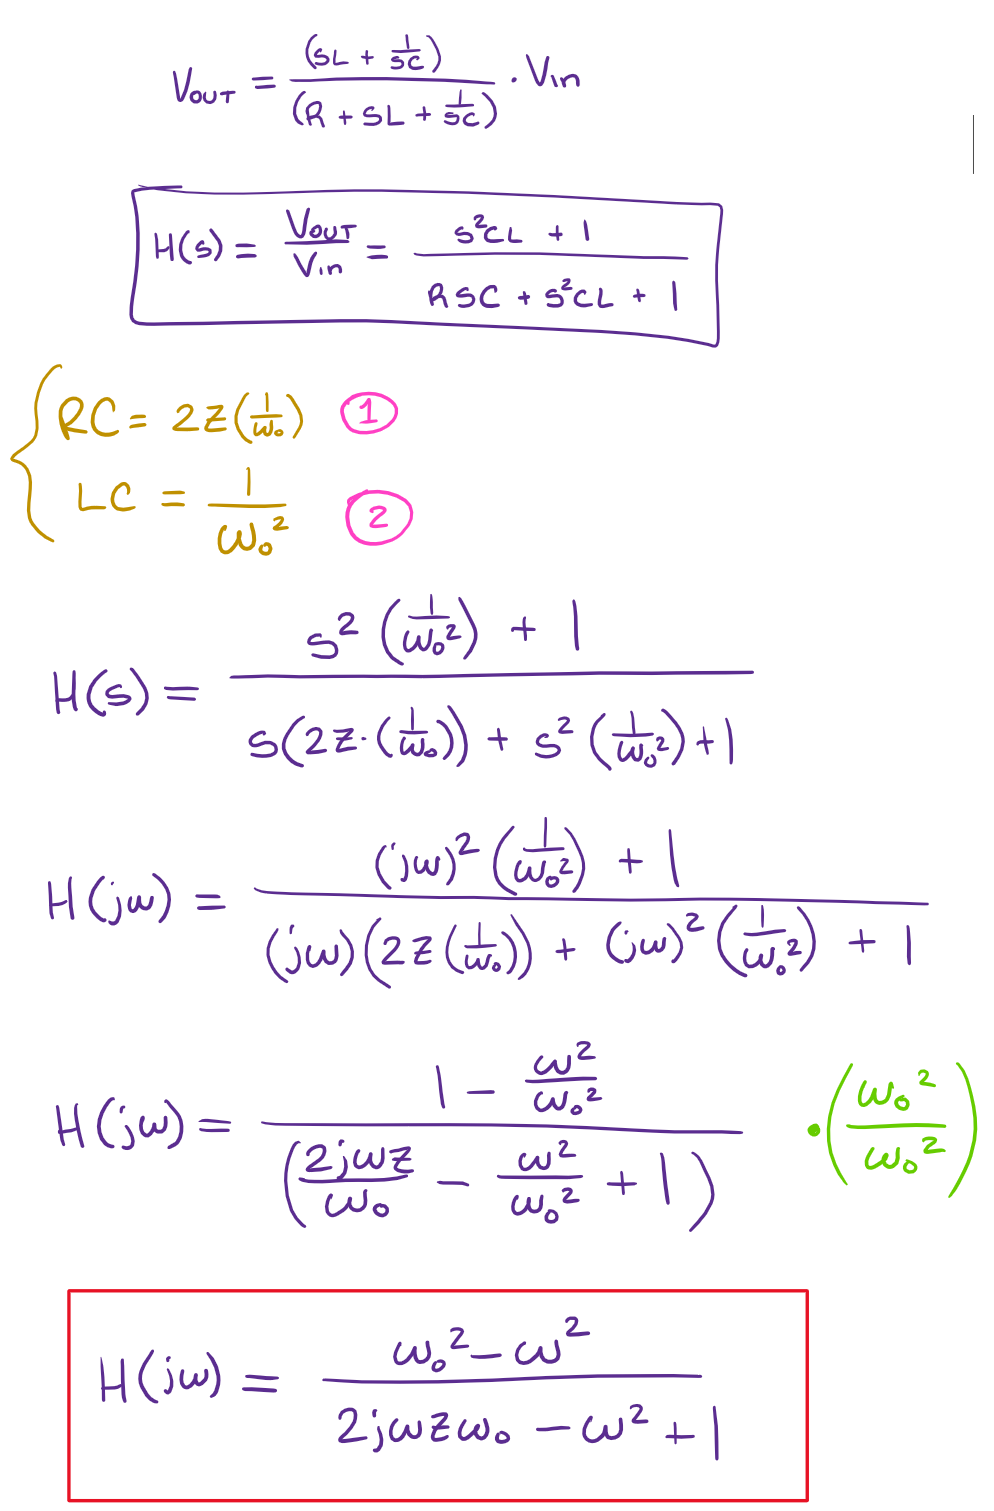 V_OUT = (sL + 1/sC) / (R + sL + 1/sC) · Vin
H(s) = V_OUT/Vin = (s²CL + 1) / (RSC + s²CL + 1)
RC = 2z(1/ω₀) ①
LC = 1/ω₀² ②
H(s) = (s²(1/ω₀²) + 1) / (s(2z·(1/ω₀)) + s²(1/ω₀²) + 1)
H(jω) = ((jω)²(1/ω₀²) + 1) / ((jω)(2z(1/ω₀)) + (jω)²(1/ω₀²) + 1)
H(jω) = (1 − ω²/ω₀²) / (2jωz/ω₀ − ω²/ω₀² + 1) ·(ω₀²/ω₀²)
H(jω) = (ω₀² − ω²) / (2jωzω₀ − ω² + 1)